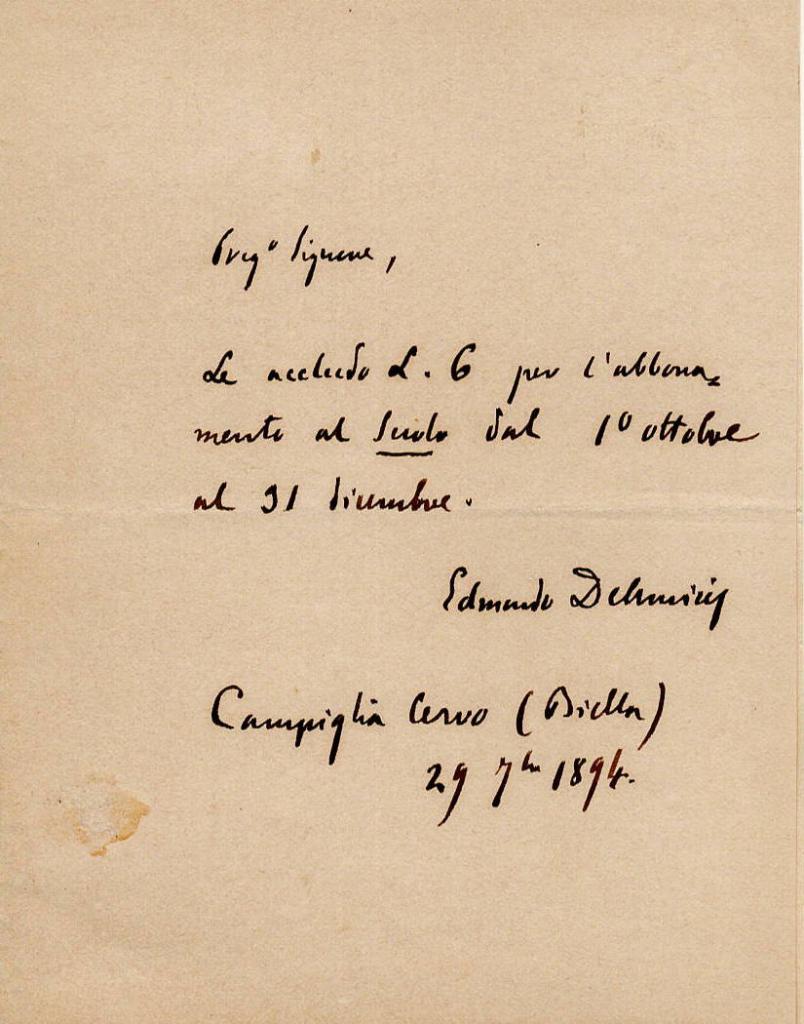 Preg° Signore,
Le accludo L. 6 per l'abbona=
mento al Secolo dal 1° ottobre
al 31 dicembre.
Edmondo DeAmicis
Campiglia Cervo (Biella)
29 7bre 1894.